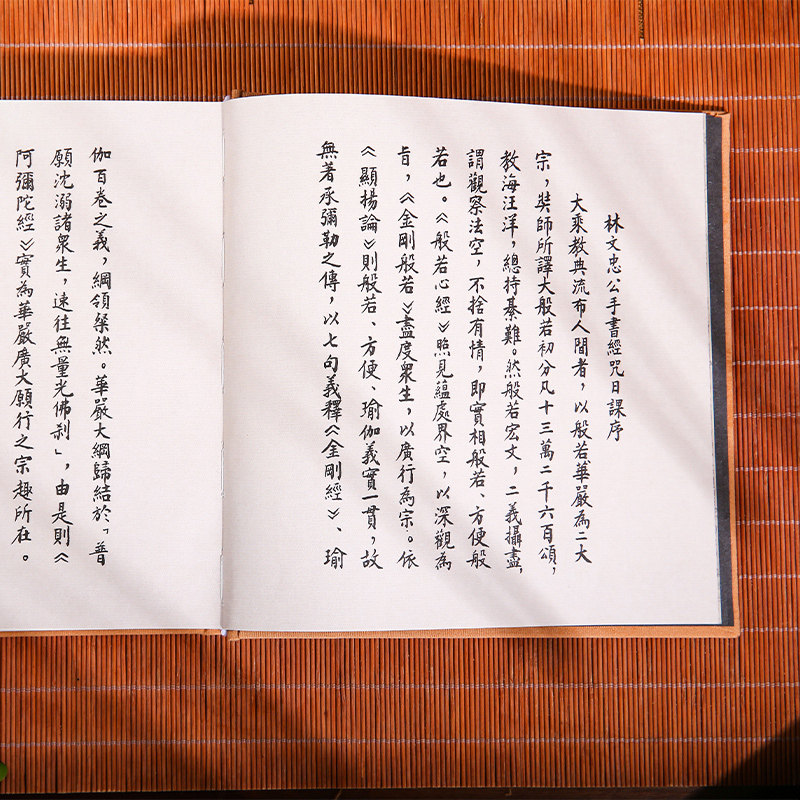 林文忠公手書經咒日課序
大乘教典流布人間者，以般若華嚴為二大
宗，奘師所譯大般若初分凡十三萬二千六百頌，
教海汪洋，總持綦難。然般若宏文，二義攝盡，
謂觀察法空，不捨有情，即實相般若、方便般
若也。《般若心經》照見蘊處界空，以深觀為
旨，《金剛般若》盡度眾生，以廣行為宗。依
《顯揚論》則般若、方便、瑜伽義實一貫，故
無著承彌勒之傳，以七句義釋《金剛經》、瑜
伽百卷之義，綱領粲然。華嚴大綱歸結於「普
願沈溺諸眾生，速往無量光佛剎」，由是則《
阿彌陀經》實為華嚴廣大願行之宗趣所在。